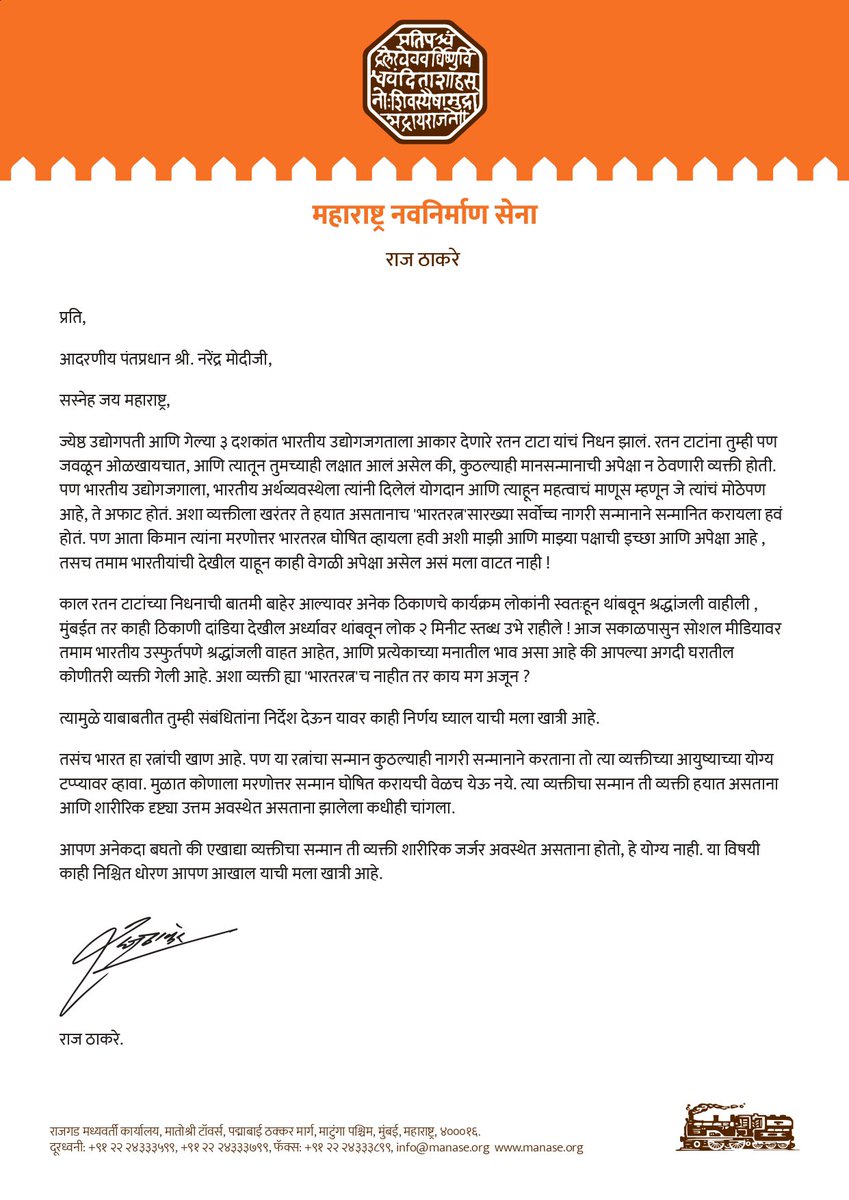 प्रतिपश्चं
द्रलेखेव वर्धिष्णुर्वि
श्ववंदिता शाहसू
नोः शिवस्यैषा मुद्रा
भद्राय राजते
महाराष्ट्र नवनिर्माण सेना
राज ठाकरे
प्रति,
आदरणीय पंतप्रधान श्री. नरेंद्र मोदीजी,
सस्नेह जय महाराष्ट्र,
ज्येष्ठ उद्योगपती आणि गेल्या ३ दशकांत भारतीय उद्योगजगताला आकार देणारे रतन टाटा यांचं निधन झालं. रतन टाटांना तुम्ही पण
जवळून ओळखायचात, आणि त्यातून तुमच्याही लक्षात आलं असेल की, कुठल्याही मानसन्मानाची अपेक्षा न ठेवणारी व्यक्ती होती.
पण भारतीय उद्योगजगाला, भारतीय अर्थव्यवस्थेला त्यांनी दिलेलं योगदान आणि त्याहून महत्वाचं माणूस म्हणून जे त्यांचं मोठेपण
आहे, ते अफाट होतं. अशा व्यक्तीला खरंतर ते हयात असतानाच 'भारतरत्न'सारख्या सर्वोच्च नागरी सन्मानाने सन्मानित करायला हवं
होतं. पण आता किमान त्यांना मरणोत्तर भारतरत्न घोषित व्हायला हवी अशी माझी आणि माझ्या पक्षाची इच्छा आणि अपेक्षा आहे ,
तसच तमाम भारतीयांची देखील याहून काही वेगळी अपेक्षा असेल असं मला वाटत नाही !
काल रतन टाटांच्या निधनाची बातमी बाहेर आल्यावर अनेक ठिकाणचे कार्यक्रम लोकांनी स्वतःहून थांबवून श्रद्धांजली वाहीली ,
मुंबईत तर काही ठिकाणी दांडिया देखील अर्ध्यावर थांबवून लोक २ मिनीट स्तब्ध उभे राहीले ! आज सकाळपासुन सोशल मीडियावर
तमाम भारतीय उस्फुर्तपणे श्रद्धांजली वाहत आहेत, आणि प्रत्येकाच्या मनातील भाव असा आहे की आपल्या अगदी घरातील
कोणीतरी व्यक्ती गेली आहे. अशा व्यक्ती ह्या 'भारतरत्न'च नाहीत तर काय मग अजून ?
त्यामुळे याबाबतीत तुम्ही संबंधितांना निर्देश देऊन यावर काही निर्णय घ्याल याची मला खात्री आहे.
तसंच भारत हा रत्नांची खाण आहे. पण या रत्नांचा सन्मान कुठल्याही नागरी सन्मानाने करताना तो त्या व्यक्तीच्या आयुष्याच्या योग्य
टप्प्यावर व्हावा. मुळात कोणाला मरणोत्तर सन्मान घोषित करायची वेळच येऊ नये. त्या व्यक्तीचा सन्मान ती व्यक्ती हयात असताना
आणि शारीरिक दृष्ट्या उत्तम अवस्थेत असताना झालेला कधीही चांगला.
आपण अनेकदा बघतो की एखाद्या व्यक्तीचा सन्मान ती व्यक्ती शारीरिक जर्जर अवस्थेत असताना होतो, हे योग्य नाही. या विषयी
काही निश्चित धोरण आपण आखाल याची मला खात्री आहे.
राज ठाकरे.
राजगड मध्यवर्ती कार्यालय, मातोश्री टॉवर्स, पद्माबाई ठक्कर मार्ग, माटुंगा पश्चिम, मुंबई, महाराष्ट्र, ४०००१६.
दूरध्वनी: +९१ २२ २४३३३५९९, +९१ २२ २४३३३७९९, फॅक्स: +९१ २२ २४३३३८९९, info@manase.org www.manase.org